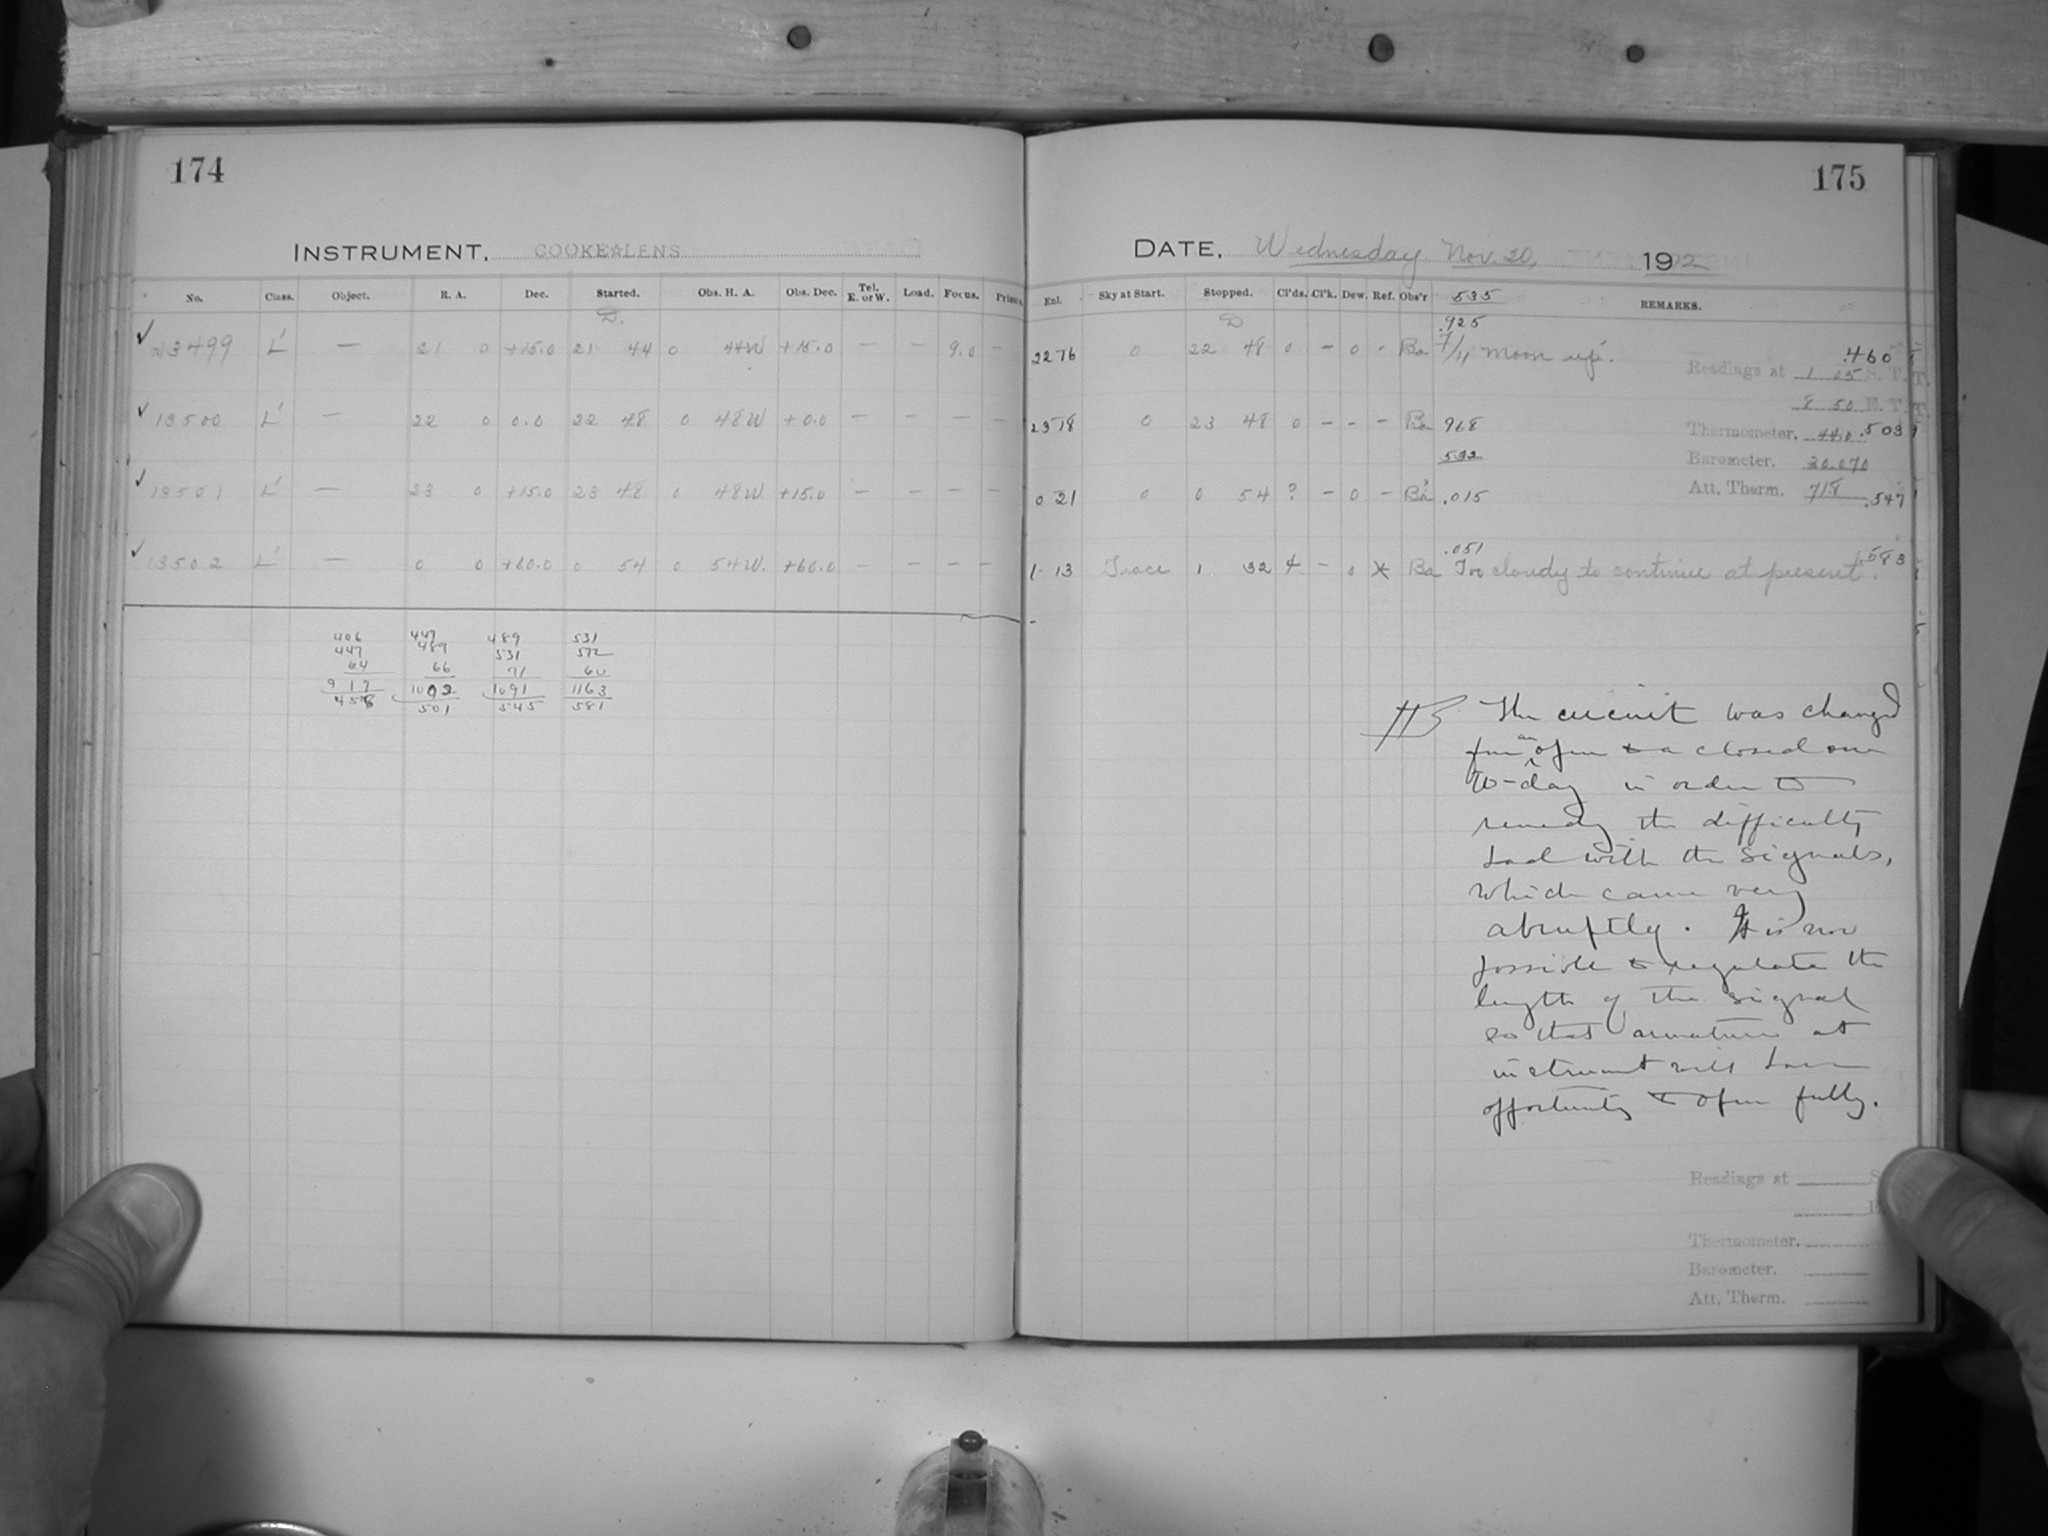 174
INSTRUMENT. COOKE☆LENS
No. Class. Object. R. A. Dec. Started. Obs. H. A. Obs. Dec. Tel. E. or W. Load. Focus. Prisms
D.
✓ 13499 L' — 21 0 +15.0 21 44 0 44W +15.0 — — 9.0 —
✓ 13500 L' — 22 0 0.0 22 48 0 48W +0.0 — — — —
✓ 13501 L' — 23 0 +15.0 23 48 0 48W +15.0 — — — —
✓ 13502 L' — 0 0 +60.0 0 54 0 54W. +60.0 — — — —
406 447 489 531
447 489 531 572
64 66 71 60
917 1002 1091 1163
458 501 545 581
175
DATE. Wednesday Nov. 20, 1912
Enl. Sky at Start. Stopped. Cl'ds. Cl'k. Dew. Ref. Obs'r 535 REMARKS.
D .925
22 16 0 22 48 0 - 0 - Ba 7/11 moon up. .460
Readings at 1 05 S. T.
8 50 E. T.
23 18 0 23 48 0 - - - Ba 968 .503
532
Thermometer. 44.0
Barometer. 30.070
Att. Therm. 71.8
0 21 0 0 54 ? - 0 - Ba .015 .547
.051 .583
1 13 Trace 1 32 - 0 Ba Too cloudy to continue at present.
The circuit was changed
from an open to a closed one
to-day in order to
remedy the difficulty
had with the signals,
which came very
abruptly. It is now
possible to regulate the
length of the signal
so that armature at
instrument will have
opportunity to open fully.
Readings at S
Thermometer.
Barometer.
Att. Therm.